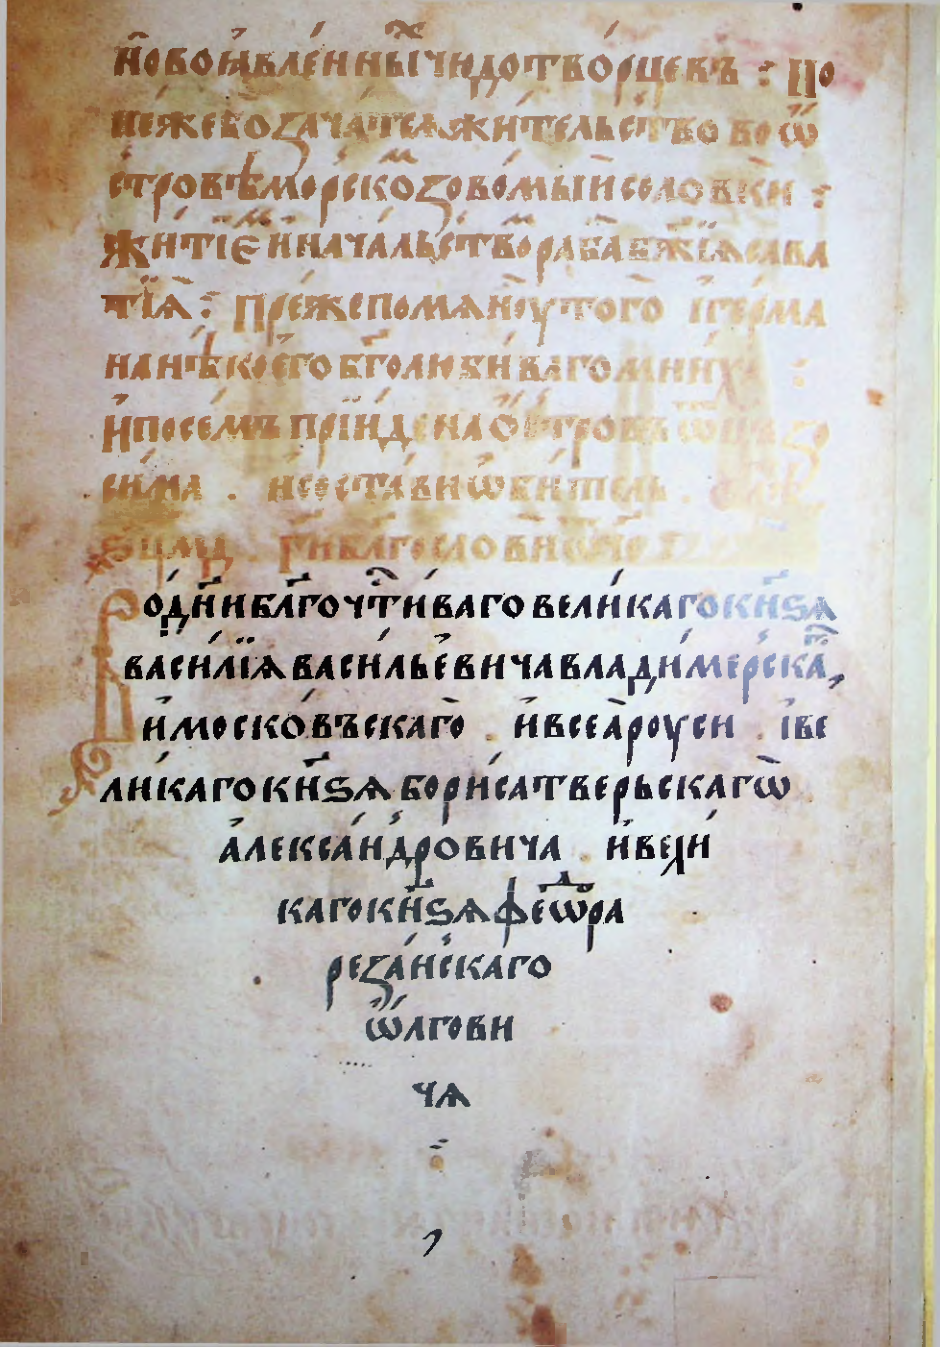 новоꙗвле́нныⷯ чюдотво́рцевъ : По
неже во зача́тсѧ жи́тельство во ѿ
стровѣⷨ мо́рско зово́мый соловки :
Житїѐ и нача́льствⷪ раба̀ бж҃їѧ сава
тїѧ̀ : пре́же помѧноутого̀ и ге́рма
на нѣ́коего бг҃олюби́ваго мни́ха :
и посемъ прїи́де на ѻ́стровъ ѿц҃ъ зо
си́ма . и состави ѡби́тель .
ѕцмд . гй бл҃гослови ѿче
Во дн҃и бл҃гочⷭ҇ти́ваго вели́каго кн҃ѕѧ
васи́лїѧ васи́льевича влади́мерскаⷢ,
и моско́въскаго̀ . и всеа̀ роуси . и ве
ли́каго кн҃ѕѧ бори́са тверьскагѡ̀
а҆леѯа́ндровича . и вели́
каго кн҃ѕѧ феѡⷣра
реза́нскаго
ѡ҆лгови
чѧ